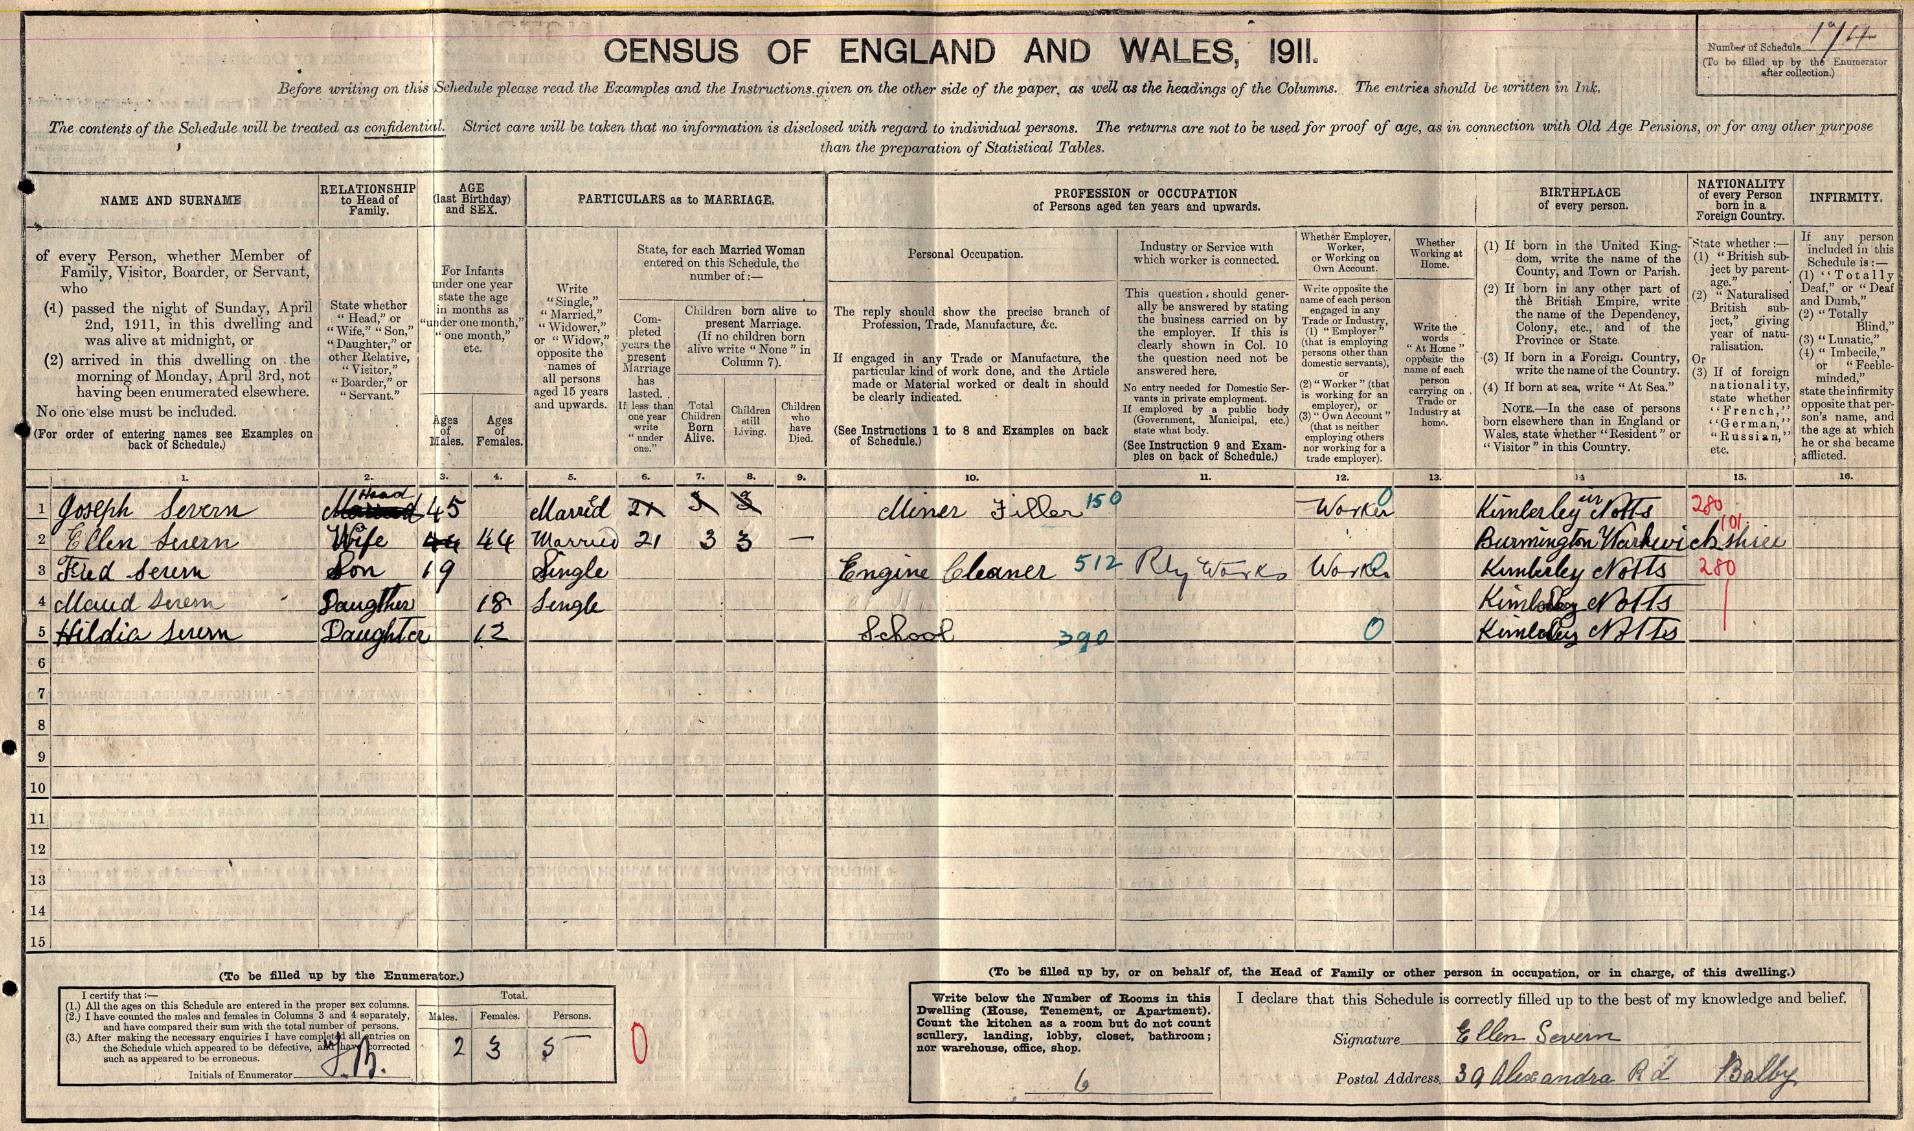 CENSUS OF ENGLAND AND WALES, 1911.
Number of Schedule 174
(To be filled up by the Enumerator after collection.)
Before writing on this Schedule please read the Examples and the Instructions given on the other side of the paper, as well as the headings of the Columns. The entries should be written in Ink.
The contents of the Schedule will be treated as confidential. Strict care will be taken that no information is disclosed with regard to individual persons. The returns are not to be used for proof of age, as in connection with Old Age Pensions, or for any other purpose
than the preparation of Statistical Tables.
NAME AND SURNAME
of every Person, whether Member of
Family, Visitor, Boarder, or Servant,
who
(1) passed the night of Sunday, April
2nd, 1911, in this dwelling and
was alive at midnight, or
(2) arrived in this dwelling on the
morning of Monday, April 3rd, not
having been enumerated elsewhere.
No one else must be included.
(For order of entering names see Examples on
back of Schedule.)
RELATIONSHIP
to Head of
Family.
State whether
"Head," or
"Wife," "Son,"
"Daughter," or
other Relative,
"Visitor,"
"Boarder," or
"Servant."
AGE
(last Birthday)
and SEX.
For Infants
under one year
state the age
in months as
"under one month,"
"one month,"
etc.
Ages
of
Males.
Ages
of
Females.
PARTICULARS as to MARRIAGE.
Write
"Single,"
"Married,"
"Widower,"
or "Widow,"
opposite the
names of
all persons
aged 15 years
and upwards.
State, for each Married Woman
entered on this Schedule, the
number of:—
Com-
pleted
years the
present
Marriage
has
lasted.
If less than
one year
write
"under
one."
Children born alive to
present Marriage.
(If no children born
alive write "None" in
Column 7).
Total
Children
Born
Alive.
Children
still
Living.
Children
who
have
Died.
PROFESSION or OCCUPATION
of Persons aged ten years and upwards.
Personal Occupation.
The reply should show the precise branch of
Profession, Trade, Manufacture, &c.
If engaged in any Trade or Manufacture, the
particular kind of work done, and the Article
made or Material worked or dealt in should
be clearly indicated.
(See Instructions 1 to 8 and Examples on back
of Schedule.)
Industry or Service with
which worker is connected.
This question should gener-
ally be answered by stating
the business carried on by
the employer. If this is
clearly shown in Col. 10
the question need not be
answered here.
No entry needed for Domestic Ser-
vants in private employment.
If employed by a public body
(Government, Municipal, etc.)
state what body.
(See Instruction 9 and Exam-
ples on back of Schedule.)
Whether Employer,
Worker,
or Working on
Own Account.
Write opposite the
name of each person
engaged in any
Trade or Industry,
(1) "Employer"
(that is employing
persons other than
domestic servants),
or
(2) "Worker" (that
is working for an
employer), or
(3) "Own Account"
(that is neither
employing others
nor working for a
trade employer).
Whether
Working at
Home.
Write the
words
"At Home"
opposite the
name of each
person
carrying on
Trade or
Industry at
home.
BIRTHPLACE
of every person.
(1) If born in the United King-
dom, write the name of the
County, and Town or Parish.
(2) If born in any other part of
the British Empire, write
the name of the Dependency,
Colony, etc., and of the
Province or State.
(3) If born in a Foreign Country,
write the name of the Country.
(4) If born at sea, write "At Sea."
NOTE.—In the case of persons
born elsewhere than in England or
Wales, state whether "Resident" or
"Visitor" in this Country.
NATIONALITY
of every Person
born in a
Foreign Country.
State whether :—
(1) "British sub-
ject by parent-
age."
(2) "Naturalised
British sub-
ject," giving
year of natu-
ralisation.
Or
(3) If of foreign
nationality,
state whether
"French,"
"German,"
"Russian,"
etc.
INFIRMITY.
If any person
included in this
Schedule is :—
(1) "Totally
Deaf," or "Deaf
and Dumb,"
(2) "Totally
Blind,"
(3) "Lunatic,"
(4) "Imbecile,"
or "Feeble-
minded,"
state the infirmity
opposite that per-
son's name, and
the age at which
he or she became
afflicted.
1. 2. 3. 4. 5. 6. 7. 8. 9. 10. 11. 12. 13. 14 15. 16.
1 Joseph Severn Head 45 Married 21 3 3 Miner Filler 150 Worker 0 Kimberley Notts 280
2 Ellen Severn Wife 44 44 Married 21 3 3 — Burmington Warkwickshire 101
3 Fred Severn Son 19 Single Engine Cleaner 512 Rly Works Worker 0 Kimberley Notts 280
4 Maud Severn Daugther 18 Single Kimberley Notts
5 Hildia Severn Daughter 12 School 390 0 Kimberley Notts
6
7
8
9
10
11
12
13
14
15
(To be filled up by the Enumerator.)
I certify that :—
(1.) All the ages on this Schedule are entered in the proper sex columns.
(2.) I have counted the males and females in Columns 3 and 4 separately,
and have compared their sum with the total number of persons.
(3.) After making the necessary enquiries I have completed all entries on
the Schedule which appeared to be defective, and have corrected
such as appeared to be erroneous.
Initials of Enumerator
Total.
Males. Females. Persons.
2 3 5
0
(To be filled up by, or on behalf of, the Head of Family or other person in occupation, or in charge, of this dwelling.)
Write below the Number of Rooms in this
Dwelling (House, Tenement, or Apartment).
Count the kitchen as a room but do not count
scullery, landing, lobby, closet, bathroom;
nor warehouse, office, shop.
6
I declare that this Schedule is correctly filled up to the best of my knowledge and belief.
Signature Ellen Severn
Postal Address 39 Alexandra Rd Balby